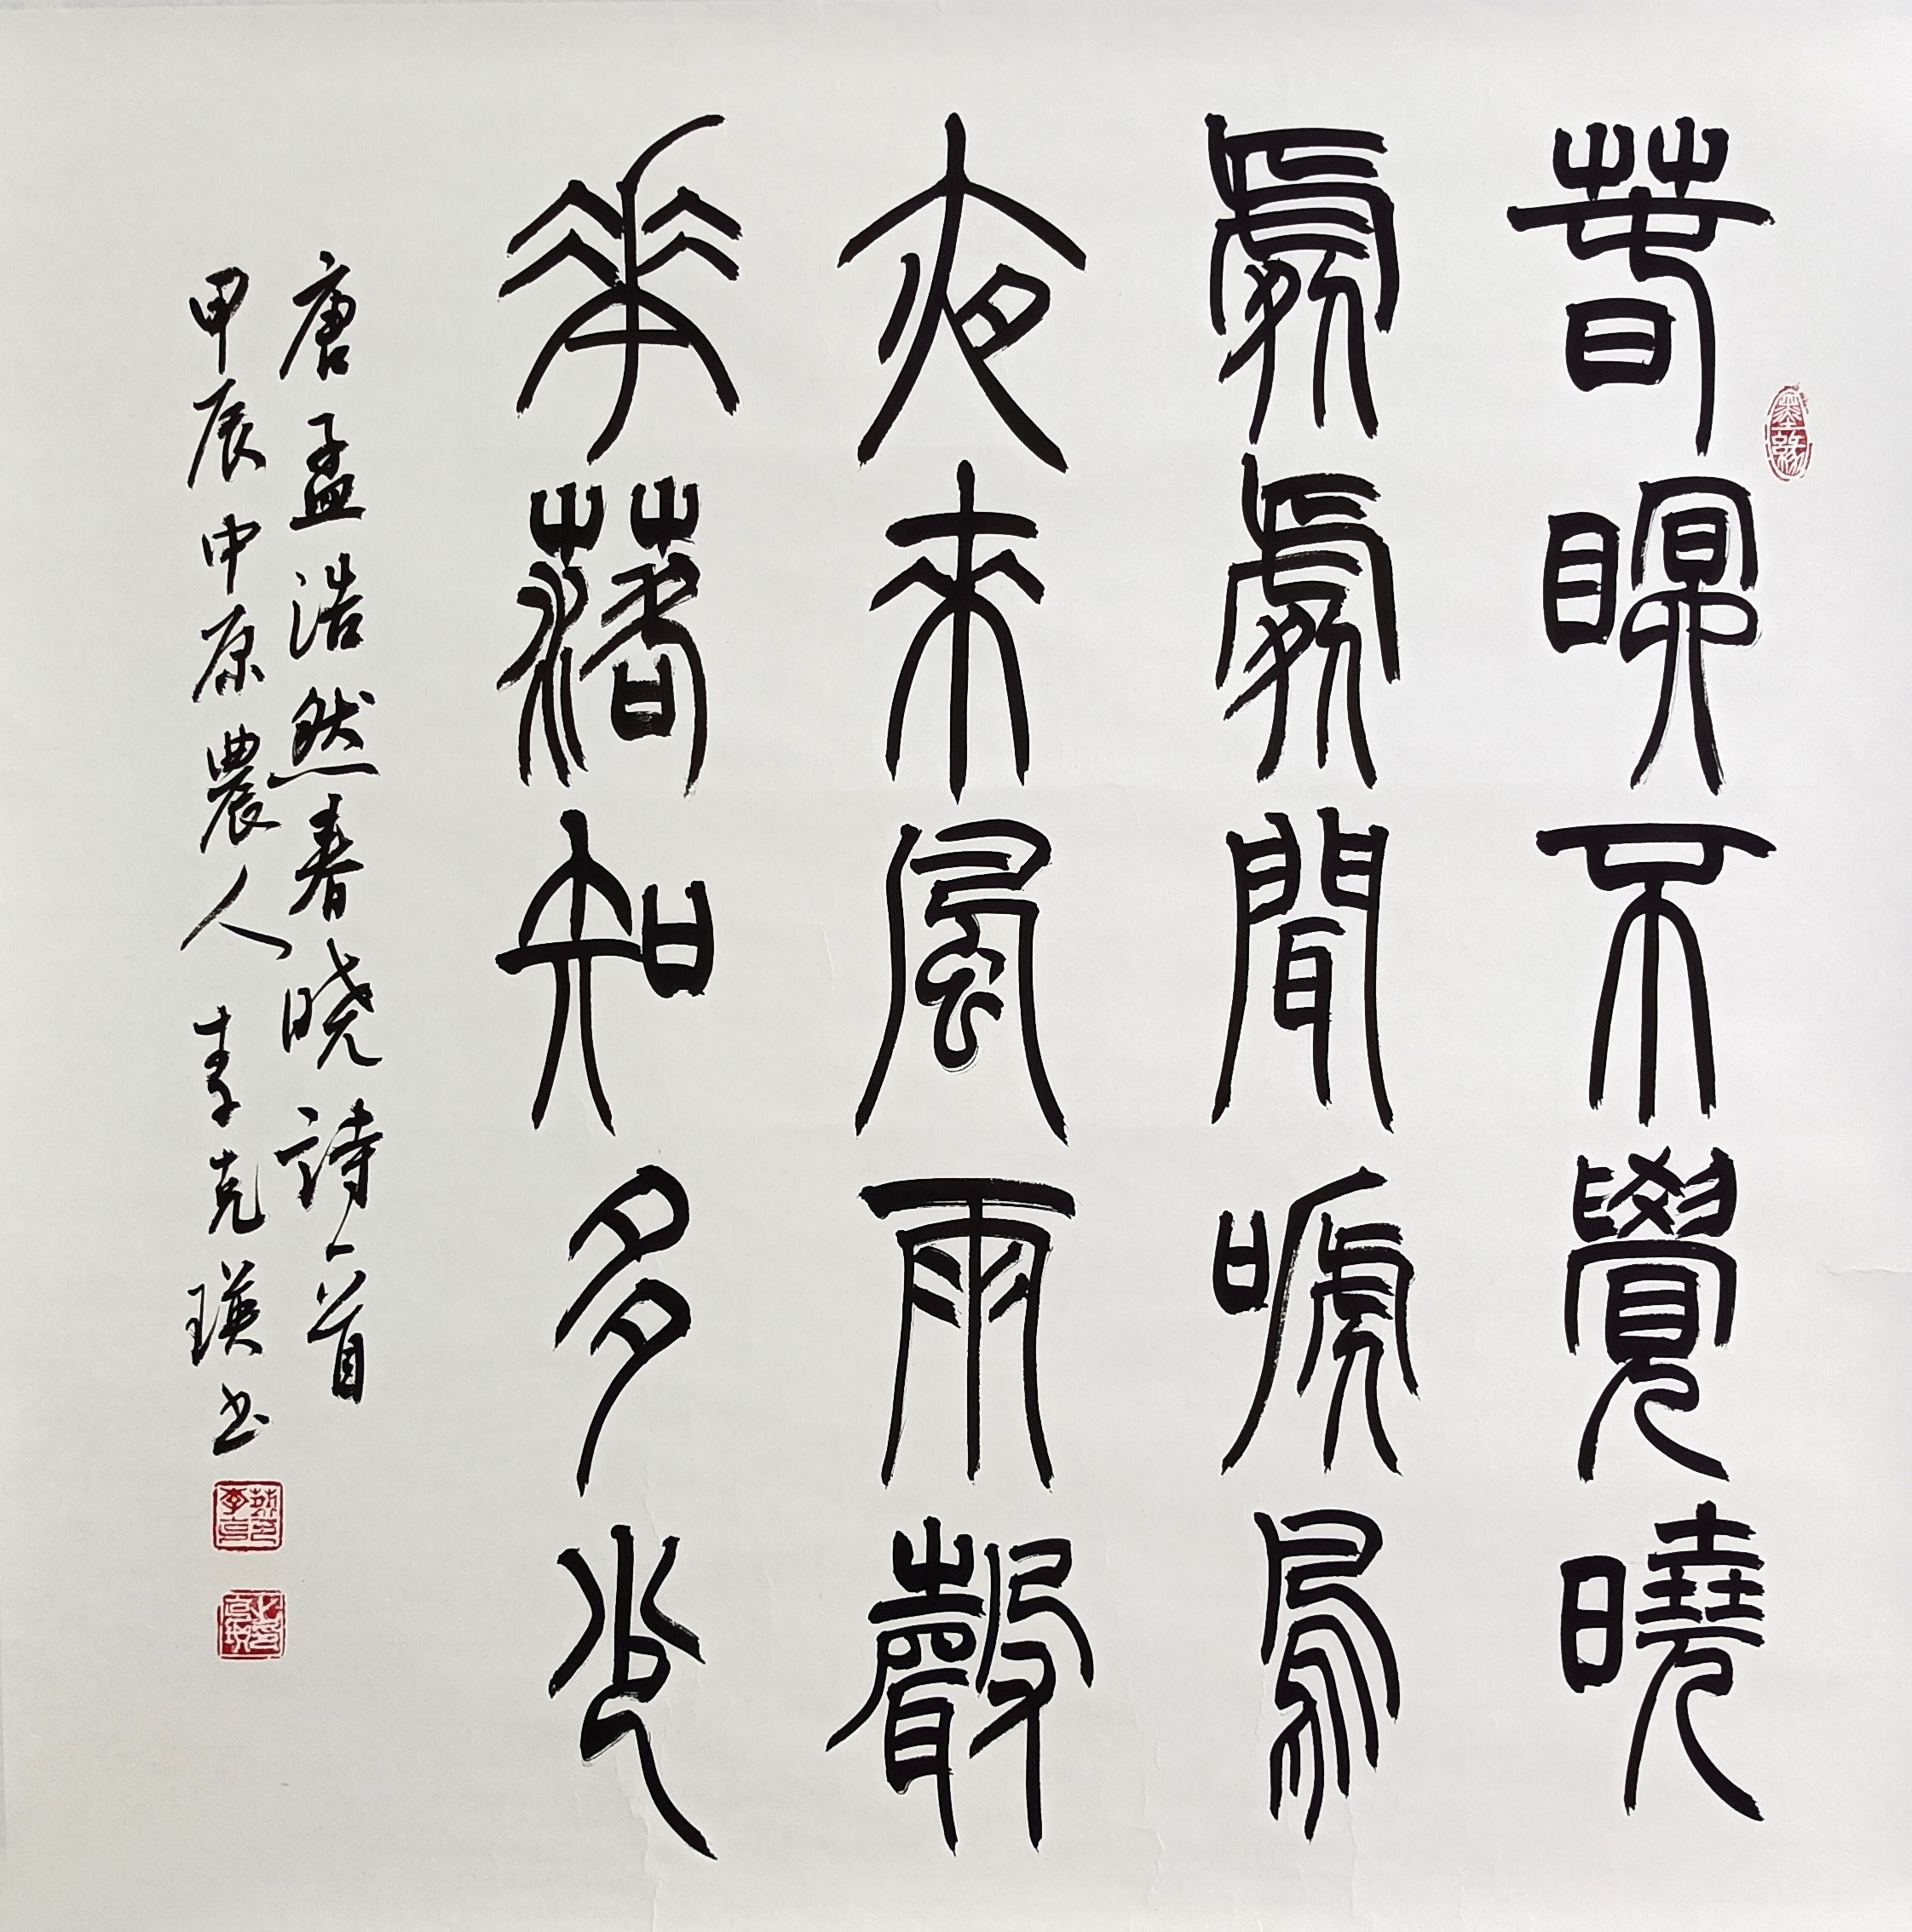 墨緣
春瞑不覺曉
處處聞嗁鳥
夜來風雨聲
華落知多少
唐孟浩然春晓詩一首
甲辰中原農人李克瑛书